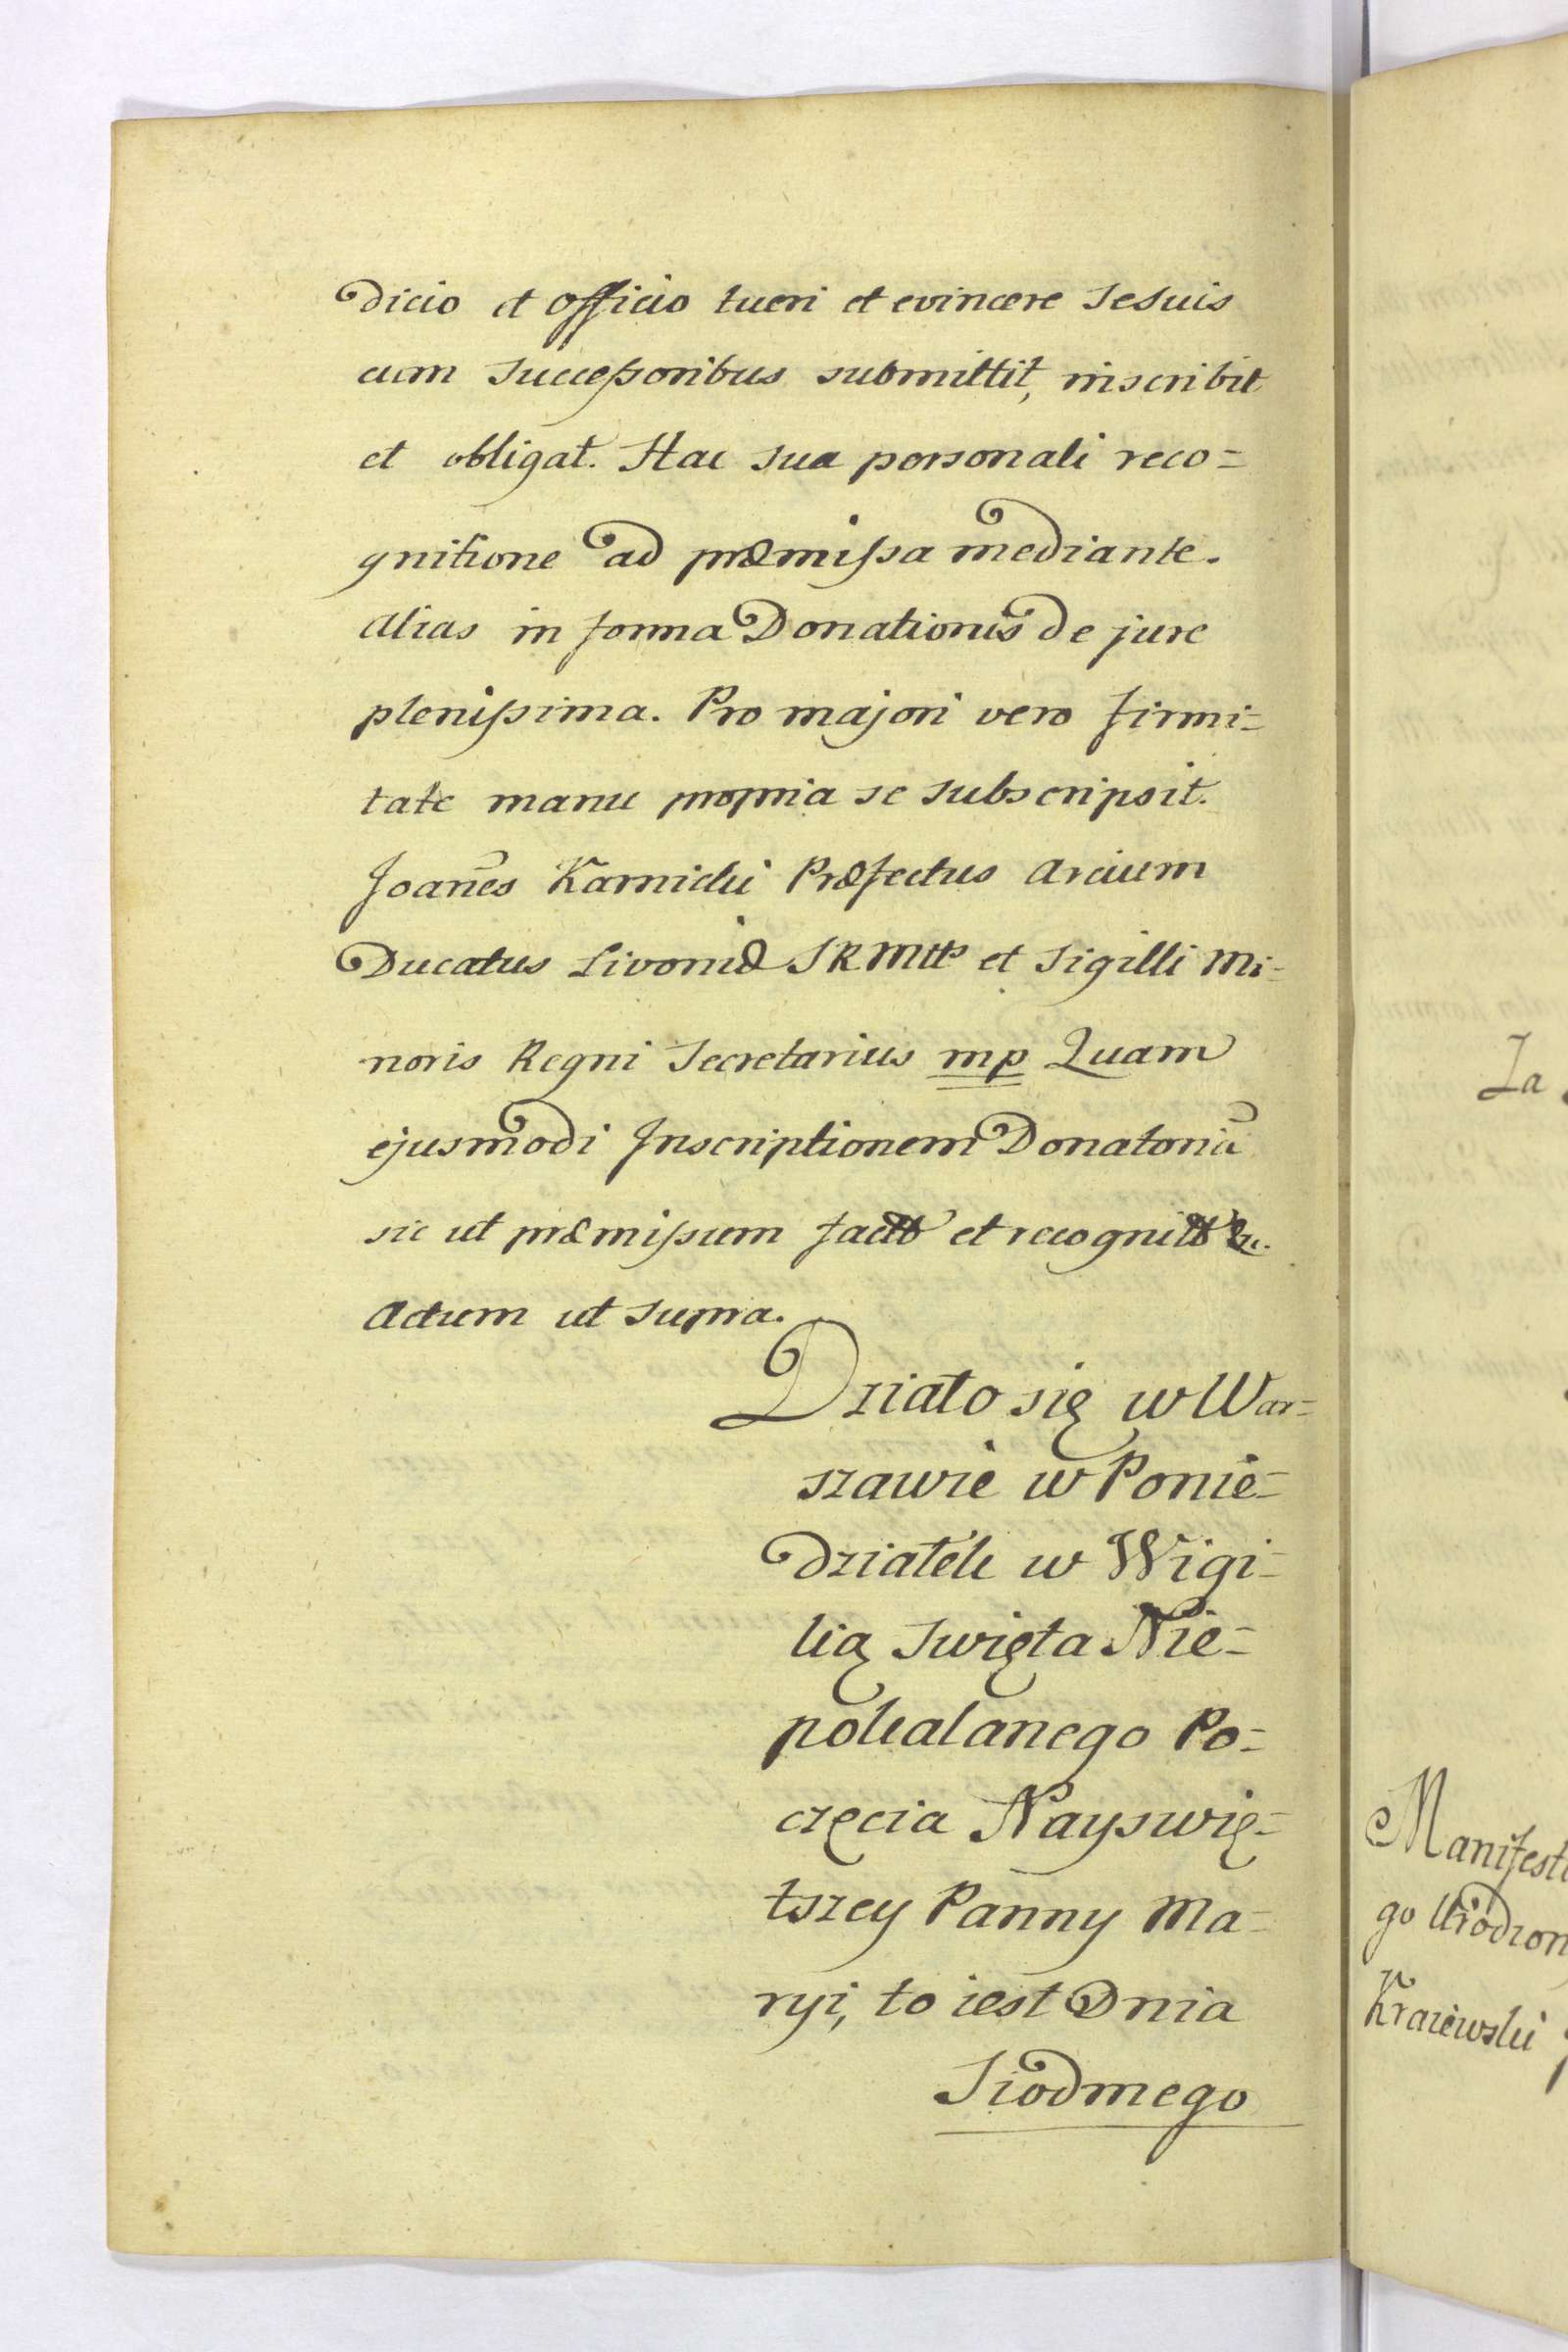 dicio et Officio tueri et evincere Sesuis
cum Successoribus submittit, inscribit
et obligat. Hac sua personali reco=
gnitione ad præmissa mediante.
alias in forma Donationis de jure
plenissima. Pro majori vero firmi=
tate manu propria se subscripsit.
Joañes Karnicki Præfectus Arcium
Ducatus Livoniæ SRMttis et Sigilli Mi=
noris Regni Secretarius mp Quam
ejusmodi Inscriptionem Donatoriã
sic ut præmissum factt et recognitt &c.
Actum ut supra.
Działo się w War=
szawie w Ponie=
działek w Wigi=
lią Swięta Nie=
pokalanego Po=
częcia Nayswię=
tszey Panny Ma=
ryi, to iest Dnia
Siodmego
Ja
Manifest
go Urodzon
Kraiewski